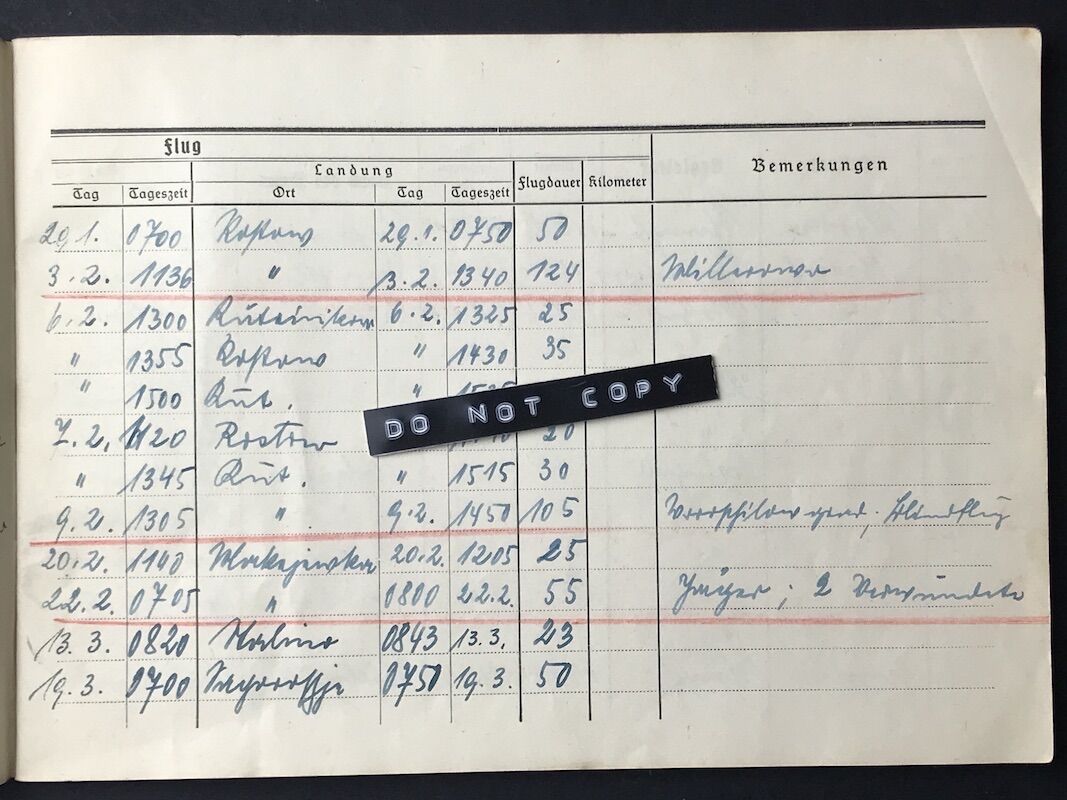 Flug
Landung
Bemerkungen
Tag Tageszeit Ort Tag Tageszeit Flugdauer Kilometer
29.1. 0700 Rostow 29.1. 0750 50
3.2. 1136 " 3.2. 1340 124 Millerowo
6.2. 1300 Kuteinikowo 6.2. 1325 25
" 1355 Rostow " 1430 35
" 1500 Kut. "
DO NOT COPY
7.2. 1120 Rostow 20
" 1345 Kut. " 1515 30
9.2. 1305 " 9.2. 1450 105 Woroschilowgrad. Blindflug
20.2. 1140 Makejewka 20.2. 1205 25
22.2. 0705 " 0800 22.2. 55 Jäger; 2 Verwundete
13.3. 0820 Stalino 0843 13.3. 23
19.3. 0700 0750 19.3. 50